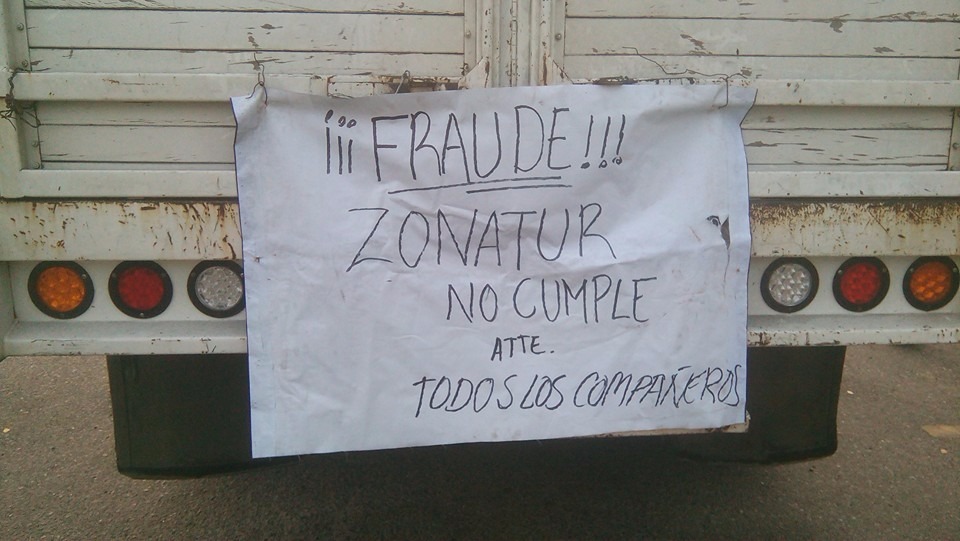 ¡¡¡FRAUDE!!!
ZONATUR
NO CUMPLE
ATTE.
TODOS LOS COMPAÑEROS